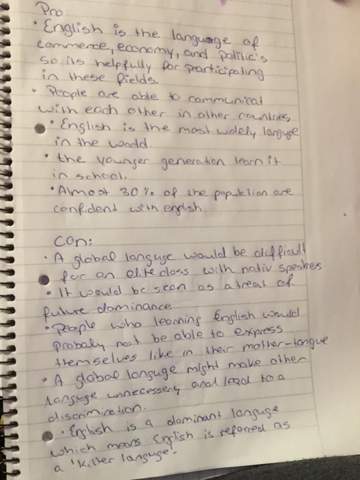 Pro
• English is the language of
commerce, economy, and politic's
so its helpfully for participating
in these fields.
• People are able to communicat
with each other in other countries
• English is the most widely languge
in the world.
• the younger generation learn it
in school.
• Almost 30% of the population are
confident with english.
Con:
• A global languge would be difficult
for an elite class with nativ speakers
• It would be seen as a treat of
future dominance.
• People who learning English would
probaly not be able to express
themselves like in their mother-tongue
• A global languge might make other
languge unnecessery and lead to a
discrimination.
• English is a dominant languge
which means English is referred as
a "killer languge".